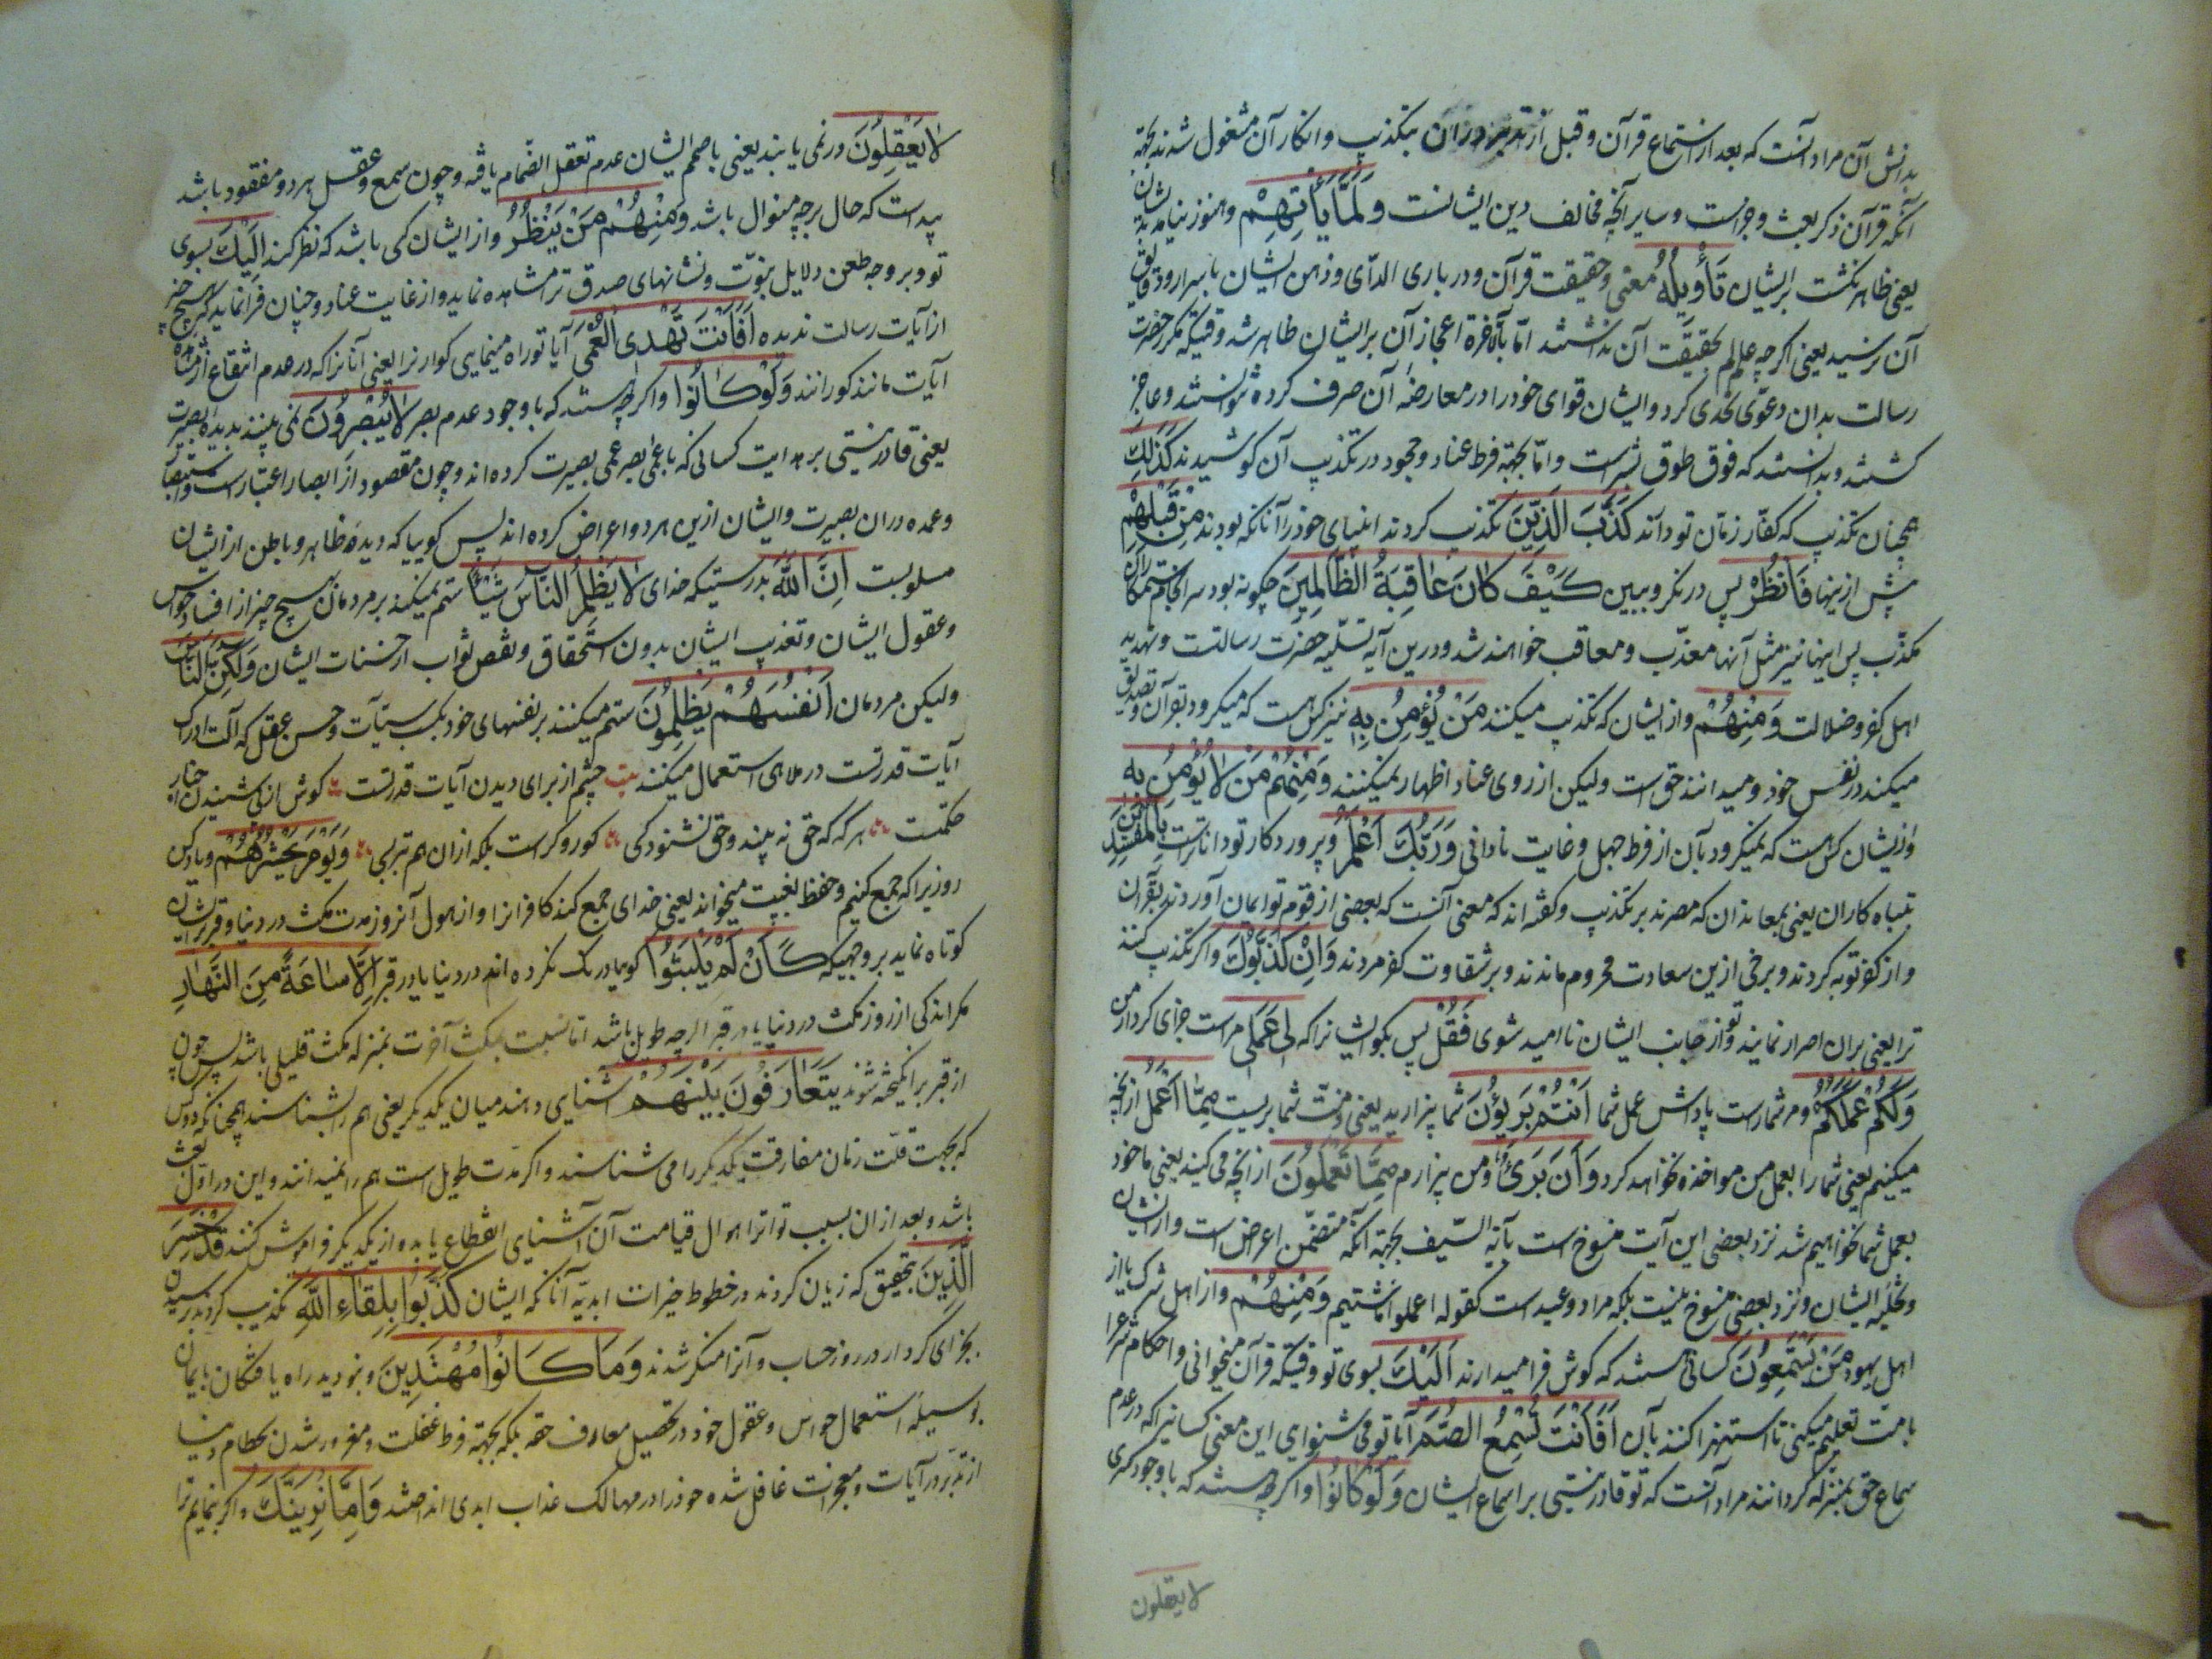 بدانش آن مراد آنست که بعد از استماع قرآن و قبل از تدبر در آن بتکذیب و انکار آن مشغول شدند بجهة
آنکه قرآن ذکر بعث و جزاست و سایر آنچه مخالف دین ایشانست وَلَمَّا يَأْتِهِمْ و هنوز نیامد بدیشان
یعنی ظاهر نکشت بر ایشان تَأْوِيلُهُ معنی و حقیقت قرآن و در باری الرّأی و ذهن ایشان باسرار و دقایق
آن نرسید یعنی اکرچه علم بحقیقت آن نداشتند امّا بآلاخرة اعجاز آن بر ایشان ظاهر شد وقتیکه مکرر حضرت
رسالت بدان دعوی تحدی کرد و ایشان قوای خود را در معارضهٔ آن صرف کرده نتوانستند و عاجز
کشتند و بدانستند که فوق طوق بشر است و امّا بجهة فرط عناد و جحود در تکذیب آن کوشیدند كَذَلِكَ
همچنان تکذیب که کفّار زمان تو دارند كَذَّبَ الَّذِينَ تکذیب کردند انبیای خود را آنانکه بودند مِنْ قَبْلِهِمْ
پیش از اینها فَانْظُرْ پس درنکر و ببین كَيْفَ كَانَ عَاقِبَةُ الظَّالِمِينَ چکونه بود سرانجام ستمکاران
مکذّب پس اینها نیز مثل آنها معذّب و معاقب خواهند شد و درین آیه تسلّیه حضرت رسالتست و تهدید
اهل کفر و ضلالت وَمِنْهُمْ و از ایشان که تکذیب میکنند مَنْ يُؤْمِنُ بِهِ نیز کس هست که میکرود بقرآن و تصدیق
میکند در نفس خود و میداند حق است ولیکن از روی عناد اظهار نمیکنند وَمِنْهُمْ مَنْ لَا يُؤْمِنُ بِهِ
و از ایشان کس هست که نمیکرود بآن از فرط جهل و غایت نادانی وَرَبُّكَ أَعْلَمُ و پروردکار تو داناتر است بِالْمُفْسِدِينَ
بتباه کاران یعنی بمعاندان که مصرند بر تکذیب و کفته اند که معنی آنست که بعضی از قوم تو ایمان آوردند بقرآن
و از کفر توبه کردند و برخی ازین سعادت محروم ماندند و بر شقاوت کفر مردند وَإِنْ كَذَّبُوكَ و اکر تکذیب کنند
ترا یعنی بر آن اصرار نمایند و تو از جانب ایشان ناامید شوی فَقُلْ پس بکو ایشانرا که لِي عَمَلِي مراست جزای کردار من
وَلَكُمْ عَمَلُكُمْ و مر شماراست پاداش عمل شما أَنْتُمْ بَرِيئُونَ شما بیزارید یعنی ذمّت شما بریست مِمَّا أَعْمَلُ از آنچه
میکنم یعنی شما را بعمل من مواخذه نخواهد کرد وَأَنَا بَرِيءٌ و من بیزارم مِمَّا تَعْمَلُونَ از آنچه می کنید یعنی ما خود
بعمل شما نخواهیم شد نزد بعضی این آیت منسوخ است بآیة السّیف بجهة آنکه متضمّن اعراض است از ایشان
و تخلیهٔ ایشان و نزد بعضی منسوخ نیست بلکه مراد وعید است کقوله اعملوا ما شئتم وَمِنْهُمْ و از اهل شرک یا از
اهل یهود مَنْ يَسْتَمِعُونَ کسانی هستند که کوش فرا میدارند إِلَيْكَ بسوی تو وقتیکه قرآن میخوانی و احکام شرع را
بامّت تعلیم میکنی تا استهزا کنند بآن أَفَأَنْتَ تُسْمِعُ الصُّمَّ آیا تو می شنوای این معنی کسانیرا که در عدم
سماع حق بمنزله کرانند مراد آنست که تو قادر نیستی بر اسماع ایشان وَلَوْ كَانُوا و اکرچه هستند که با وجود کری
لا یعقلون
لَا يَعْقِلُونَ در نمی یابند یعنی باصمم ایشان عدم تعقل انضمام یافته و چون سمع و عقل هر دو مفقود باشد
پیداست که حال برچه منوال باشد وَمِنْهُمْ مَنْ يَنْظُرُ و از ایشان کسی باشد که نظر کند إِلَيْكَ بسوی
تو و بر وجه طعن دلایل نبوّت و نشانهای صدق ترا مشاهده نماید و از غایت عناد چنان فرا نماید که هیچ چیز
از آیات رسالت ندیده أَفَأَنْتَ تَهْدِي الْعُمْيَ آیا تو راه مینمایی کوارنرا یعنی آنانرا که در عدم انتفاع از مشاهده
آیات مانند کورانند وَلَوْ كَانُوا و اکرچه هستند که با وجود عدم بصر لَا يُبْصِرُونَ نمی بینند بدیده بصیرت
یعنی قادر نیستی بر هدایت کسانی که با عمی بصر عمی بصیرت کرده اند و چون مقصود از ابصار اعتبار است و استبصار
و عمده در آن بصیرت و ایشان ازین هر دو اعراض کرده اند پس کوییا که دیده ظاهر و باطن از ایشان
مسلوبست إِنَّ اللَّهَ بدرستیکه خدای لَا يَظْلِمُ النَّاسَ شَيْئًا ستم نمیکند بر مردمان هیچ چیز از افساد حواس
و عقول ایشان و تعذیب ایشان بدون استحقاق و نقص ثواب از حسنات ایشان وَلَكِنَّ النَّاسَ
ولیکن مردمان أَنْفُسَهُمْ يَظْلِمُونَ ستم میکنند بر نفسهای خود بکسب سیّآت و حس و عقل که آلت ادراک
آیات قدرتست در ملاهی استعمال میکنند بیت چشم از برای دیدن آیات قدرتست کوش از پی شنیدن اخبار
حکمتست هرکه که حق نه بیند و حق نشنود کسی کور و کرست بلکه از ان هم بتر بسی وَيَوْمَ يَحْشُرُهُمْ و یاد کن
روزیرا که جمع کنیم و حفظ بغیبت میخواند یعنی خدای جمع کند کافرانرا و از هول آنروز مدت مکث در دنیا و قبر بر ایشان
کوتاه نماید بر وجهیکه كَأَنْ لَمْ يَلْبَثُوا کویا درنک نکرده اند در دنیا یا در قبر إِلَّا سَاعَةً مِنَ النَّهَارِ
مکر اندکی از روز مکث در دنیا یا در قبر اکرچه طویل باشد امّا نسبت بمکث آخرت بمنزله مکث قلیلی باشد پس چون
از قبر برانکیخته شوند يَتَعَارَفُونَ بَيْنَهُمْ آشنایی دهند میان یکدیکر یعنی هم را بشناسند همچنانکه دو کس
که بجهت قلّت زمان مفارقت یکدیکر را می شناسند و اکر مدّت طویل است هم را نمیدانند و این در اوّل بعث
باشد و بعد از ان بسبب تواتر اهوال قیامت آن آشنایی انقطاع یابد و از یکدیکر فراموش کنند قَدْ خَسِرَ
الَّذِينَ بتحقیق که زیان کردند در حظوظ خیرات ابدیّه آنانکه ایشان كَذَّبُوا بِلِقَاءِ اللَّهِ تکذیب کردند رسیدن
بجزای کردار در روز حساب و آنرا منکر شدند وَمَا كَانُوا مُهْتَدِينَ و نبودید راه یافتکان بایمان
بوسیله استعمال حواس و عقول خود در تحصیل معارف حقه بلکه بجهة فرط غفلت و مغرور شدن بحطام دنیا
از تدبّر در آیات و معجزات غافل شده خود را در مهالک عذاب ابدی انداختند وَإِمَّا نُرِيَنَّكَ و اکر بنماییم ترا